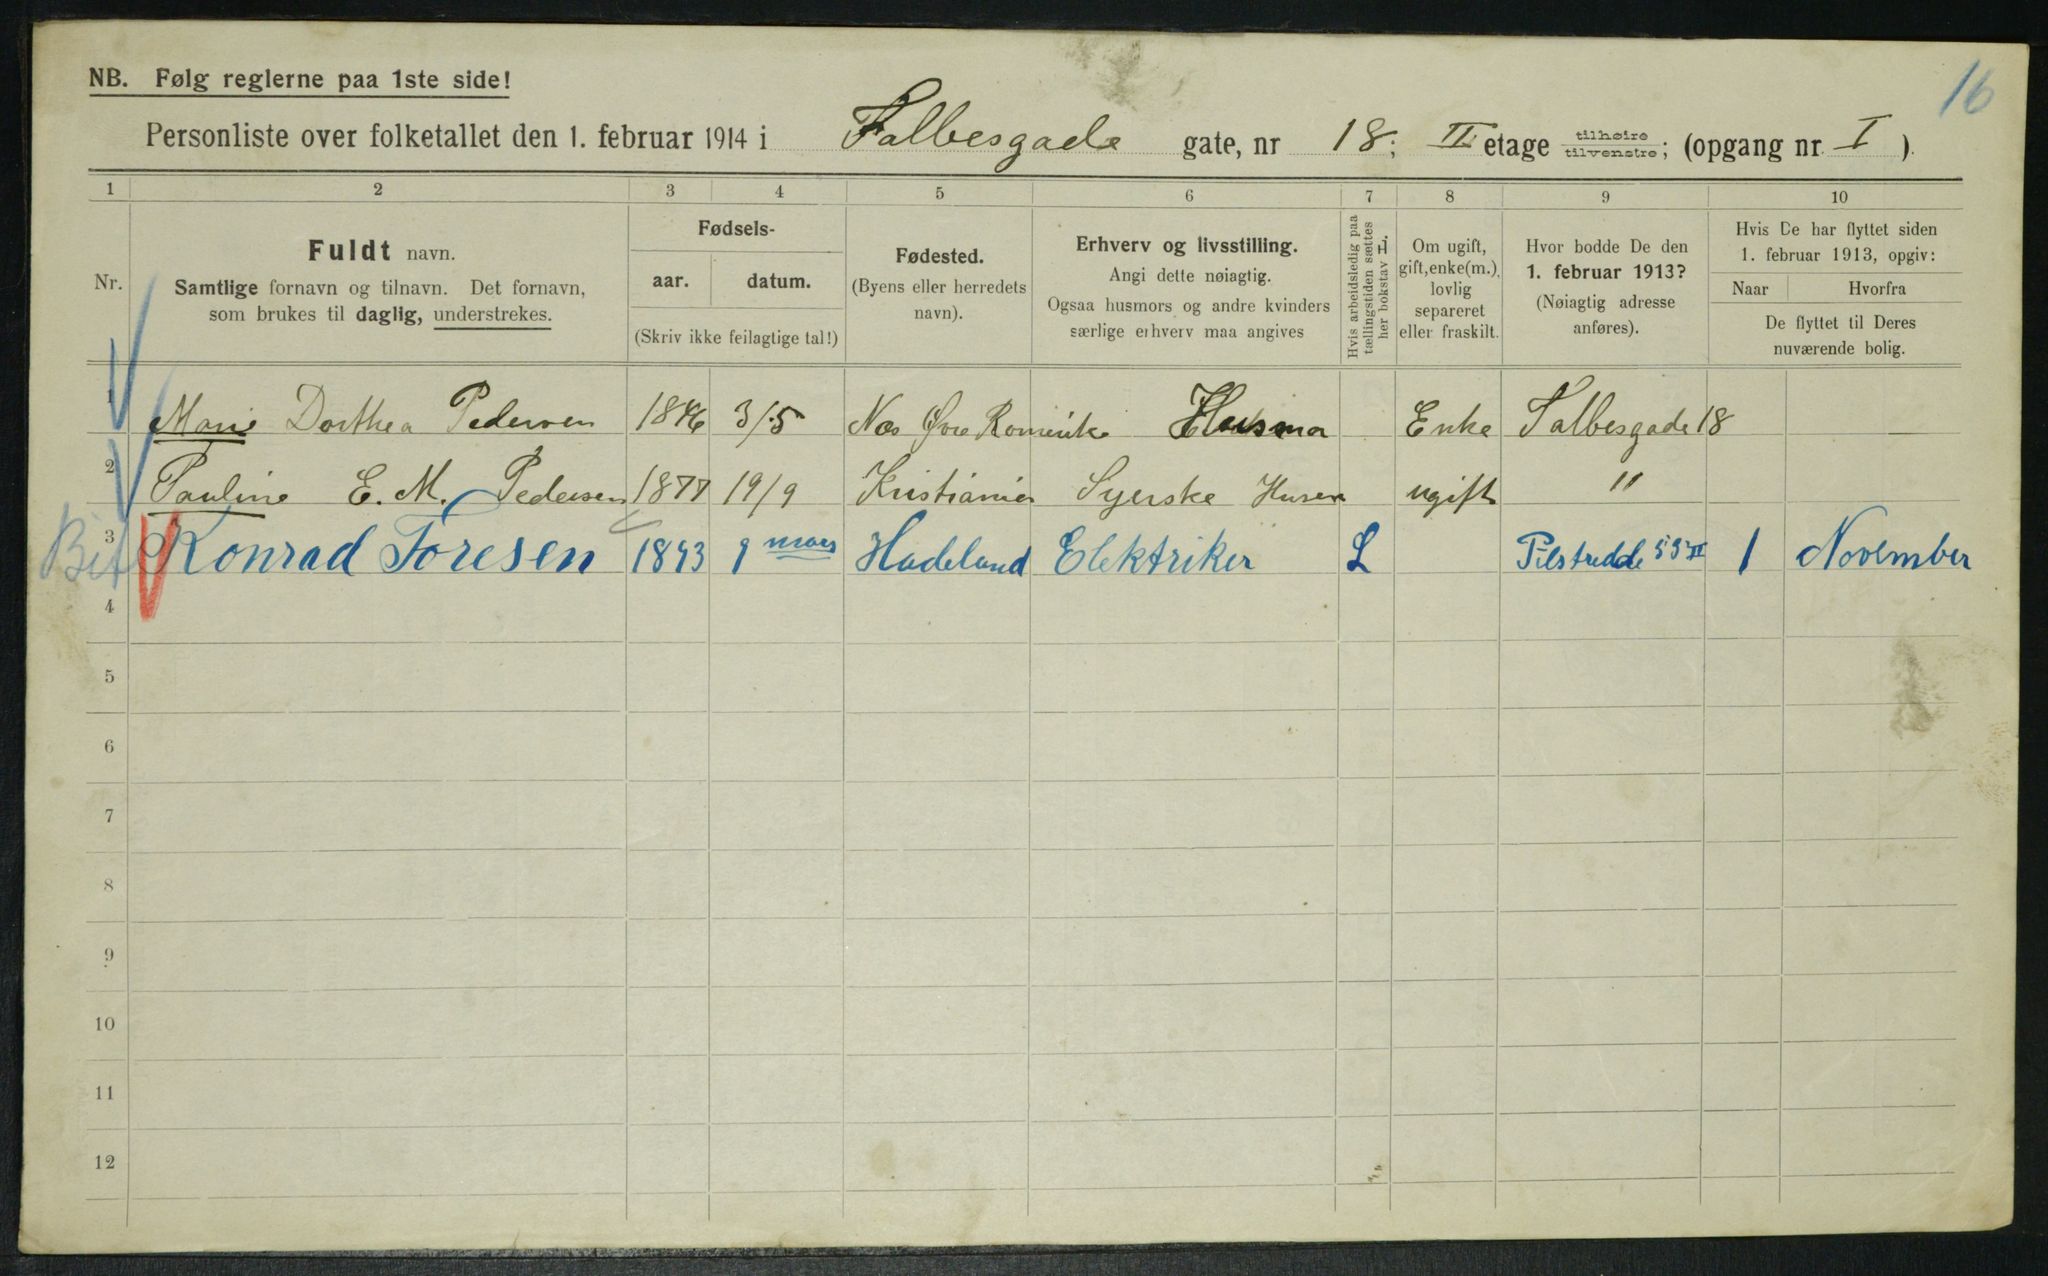 16
NB. Følg reglerne paa 1ste side!
Personliste over folketallet den 1. februar 1914 i Falbesgade gate, nr 18; II etage tilhøire tilvenstre; (opgang nr. I ).
1 2 3 4 5 6 7 8 9 10
Nr.
Fuldt navn.
Samtlige fornavn og tilnavn. Det fornavn,
som brukes til daglig, understrekes.
Fødsels-
aar. datum.
(Skriv ikke feilagtige tal!)
Fødested.
(Byens eller herredets
navn).
Erhverv og livsstilling.
Angi dette nøiagtig.
Ogsaa husmors og andre kvinders
særlige erhverv maa angives
Hvis arbeidsledig paa
tællingstiden sættes
her bokstav L.
Om ugift,
gift, enke(m.),
lovlig
separeret
eller fraskilt.
Hvor bodde De den
1. februar 1913?
(Nøiagtig adresse
anføres).
Hvis De har flyttet siden
1. februar 1913, opgiv:
Naar Hvorfra
De flyttet til Deres
nuværende bolig.
1 Marie Dorthea Pedersen 1846 3/5 Nes Øvre Romerike Husmor Enke Falbesgade 18
2 Pauline E. M. Pedersen 1877 19/9 Kristiania Syerske Ugift "
3 Konrad Toresen 1893 9 mars Hadeland Elektriker L Pilestredde 55 II 1 November
4
5
6
7
8
9
10
11
12